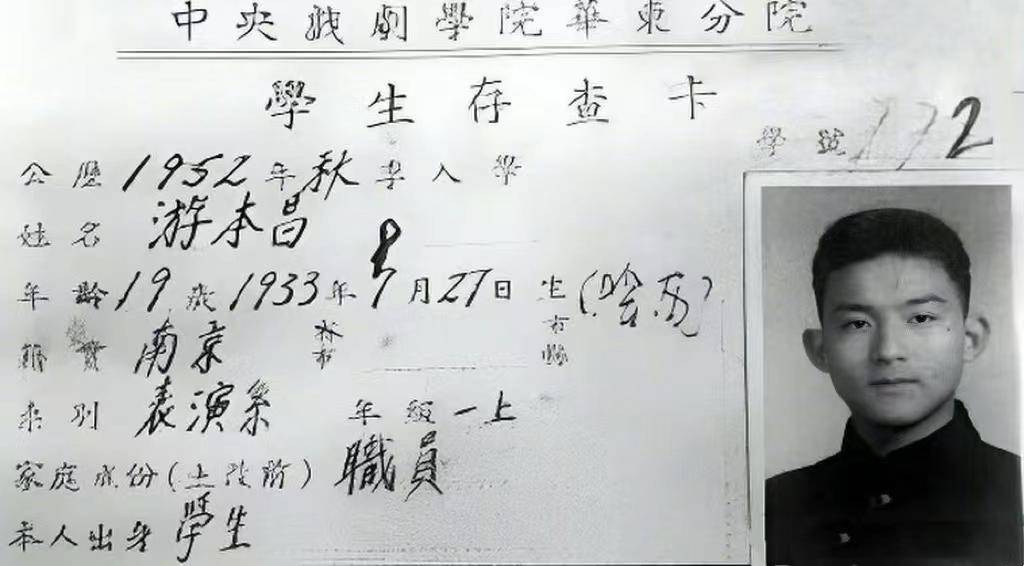 中央戲劇學院華東分院
學生存查卡
學號 172
公歷1952年秋季入學
姓名 游本昌
年齡19歲1933年8月27日生(陰历)
籍貫 南京 省市 市縣
系別 表演系 年級 一上
家庭成份(土改前) 職員
本人出身 學生